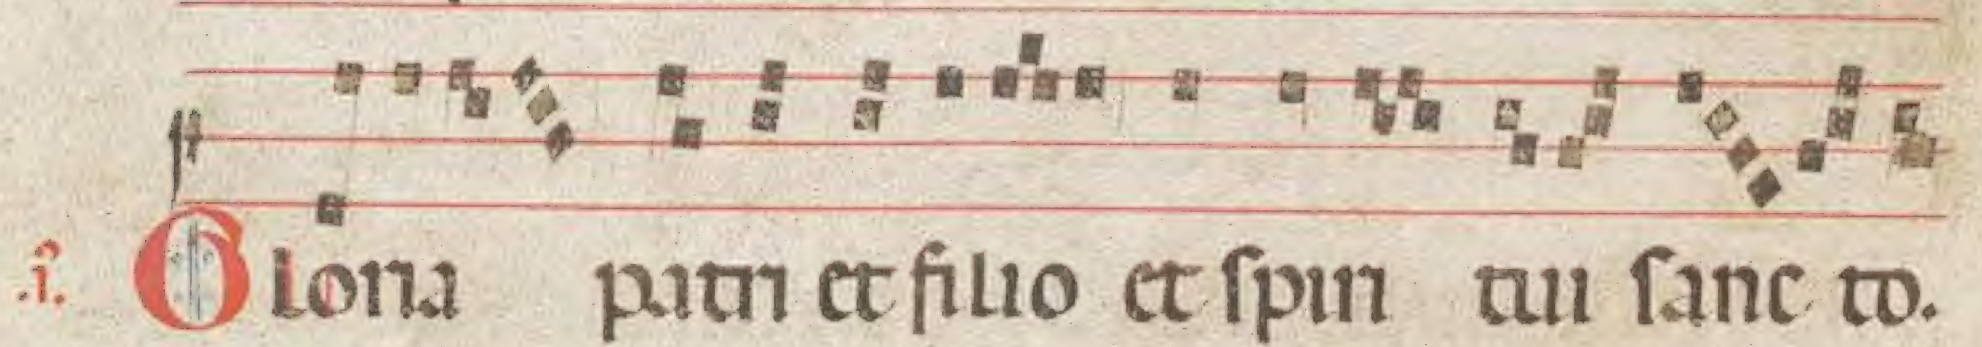 .i. Gloria patri et filio et spiri tui sanc to.